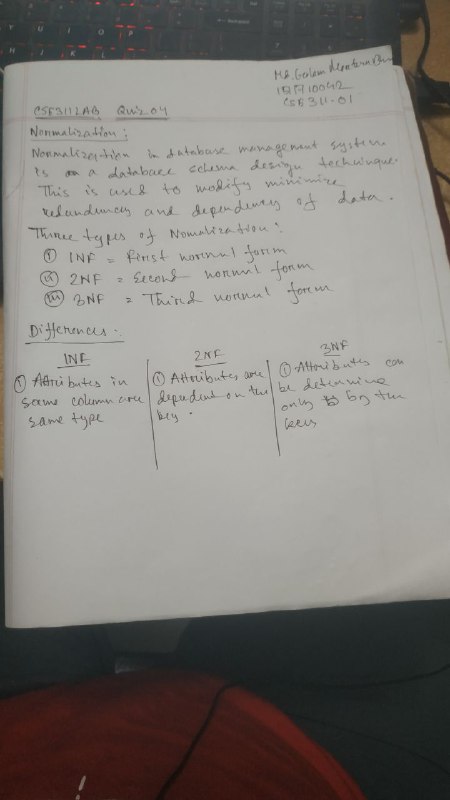 Md. Golam
CSE 311-01
CSE311LAB Quiz 04
Normalization:
Normalization in database management system
is a database schema design technique.
This is used to modify minimize
redundancy and dependency of data.
Three types of Nomalization:
(i) 1NF = First normal form
(ii) 2NF = Second normal form
(iii) 3NF = Third normal form
Differences:
1NF
(i) Attributes in
same column are
same type
2NF
(i) Attributes are
dependent on the
key.
3NF
(i) Attributes can
be determine
only by the
key